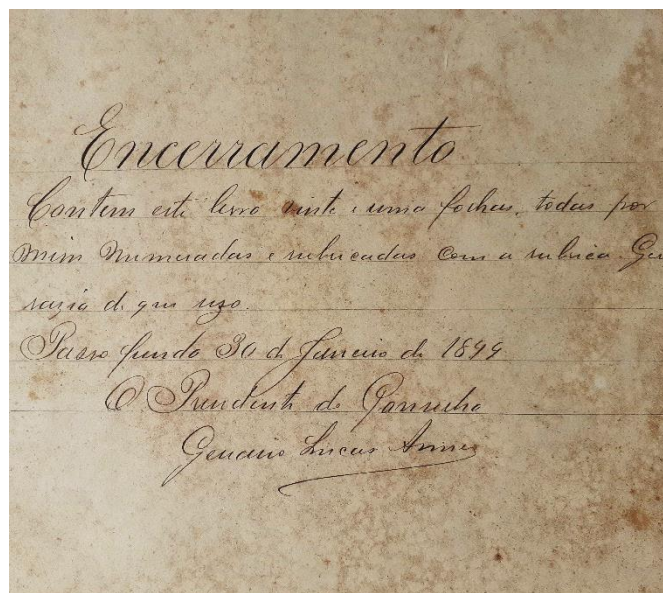 Encerramento
Contem este livro vinte e uma fochas, todas por
mim numeradas e rubricadas com a rubrica Ge
razio de que uzo.
Passo fundo 30 de Janeiro de 1899
O Presidente do Conselho
Lucas